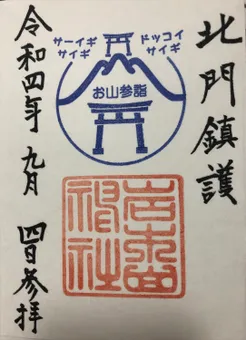 北門鎮護
サーイギ
サイギ
ドッコイ
サイギ
お山参詣
岩木山
神社
令和四年 九月 四日参拝